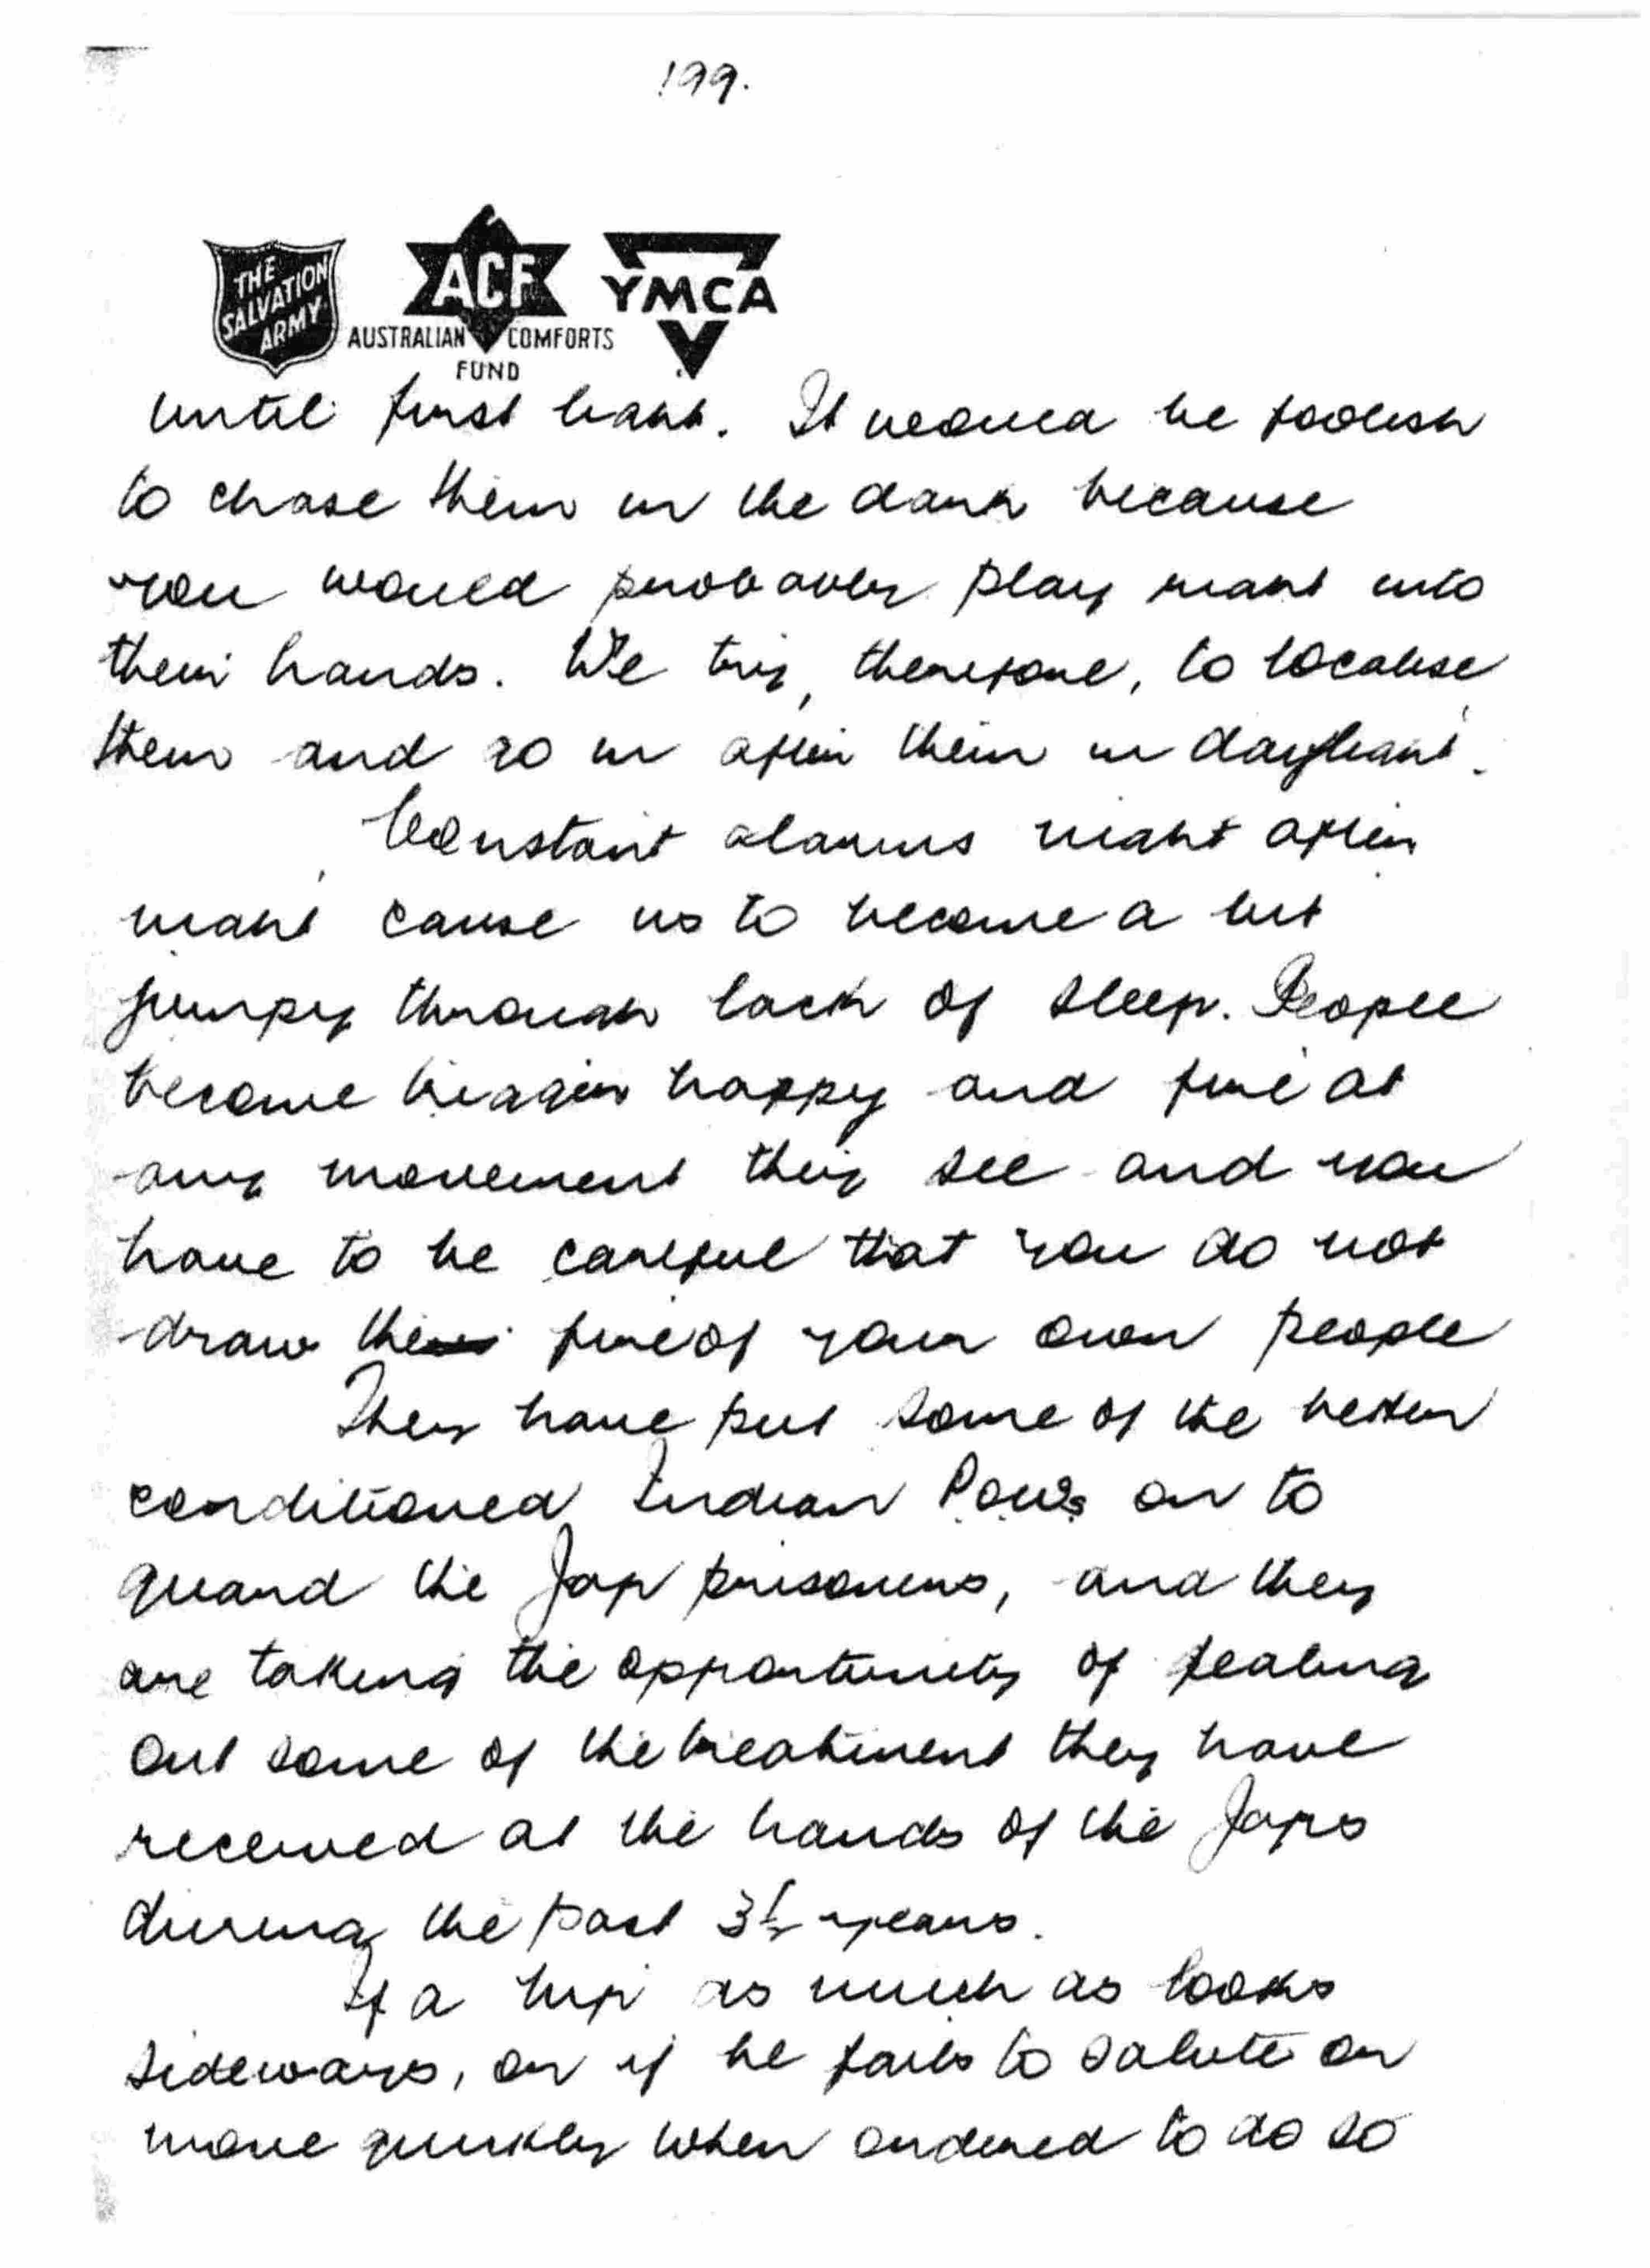 199.
THE SALVATION ARMY
ACF
AUSTRALIAN COMFORTS FUND
YMCA
until first light. It would be foolish
to chase them in the dark because
you would probably play right into
their hands. We try, therefore, to localise
them and go in after them in daylight.
Constant alarms night after
night cause us to become a bit
jumpy through lack of sleep. People
become trigger happy and fire at
any movement they see and you
have to be careful that you do not
draw the fire of your own people
They have put some of the better
conditioned Indian Pows on to
guard the Jap prisoners, and they
are taking the opportunity of dealing
out some of the treatment they have
received at the hands of the Japs
during the past 3½ years.
If a Nip as much as looks
sideways, or if he fails to salute or
move quickly when ordered to do so